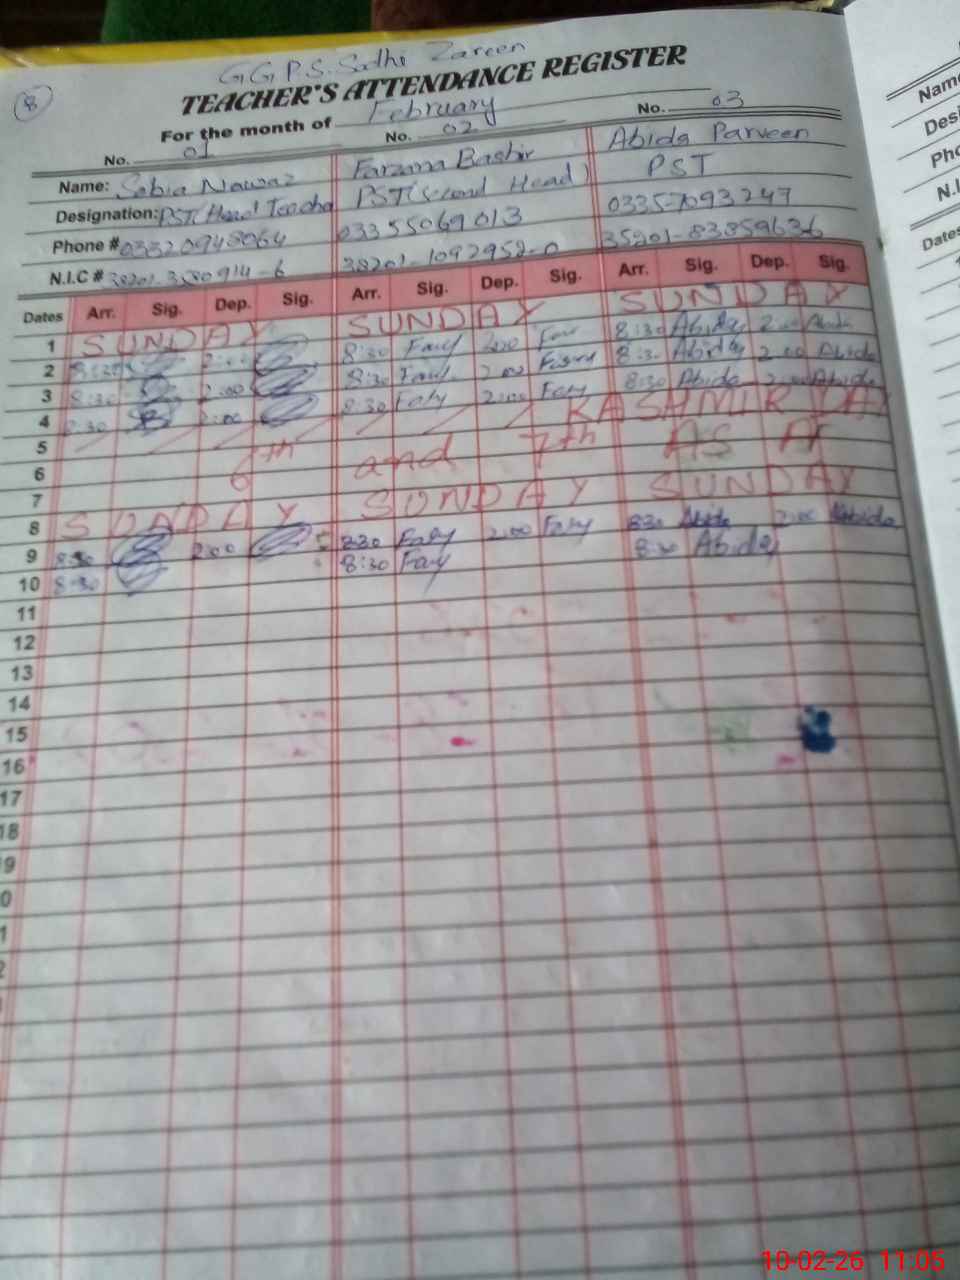 8
G G P.S. Sadhi Zareen
TEACHER'S ATTENDANCE REGISTER
For the month of February
No. 01 No. 02 No. 03
Name: Sobia Nawaz Farzana Bashir Abida Parveen
Designation: PST(Head Teacher PST(Second Head) PST
Phone # 03320948064 03355069013 0335-7093247
N.I.C # 38201-1092952-0 35201-8385963-6
Dates Arr. Sig. Dep. Sig. Arr. Sig. Dep. Sig. Arr. Sig. Dep. Sig.
1 SUNDAY SUNDAY SUNDAY
2 8:30 2:00 8:30 2:00 8:30 Abida 2:00 Abida
3 8:30 2:00 8:30 2:00 8:30 Abida 2:00 Abida
4 8:30 2:00 8:30 2:00 8:30 Abida 2:00 Abida
5 KASHMIR DAY
6 6th and 7th AS A
7
8 SUNDAY SUNDAY SUNDAY
9 8:30 2:00 8:30 2:00 8:30 Abida 2:00 Abida
10 8:30 8:30 8:30 Abida
11
12
13
14
15
16
17
18
9
0
1
2
Name
Desi
Pho
N.I.
Dates
10-02-26 11:05